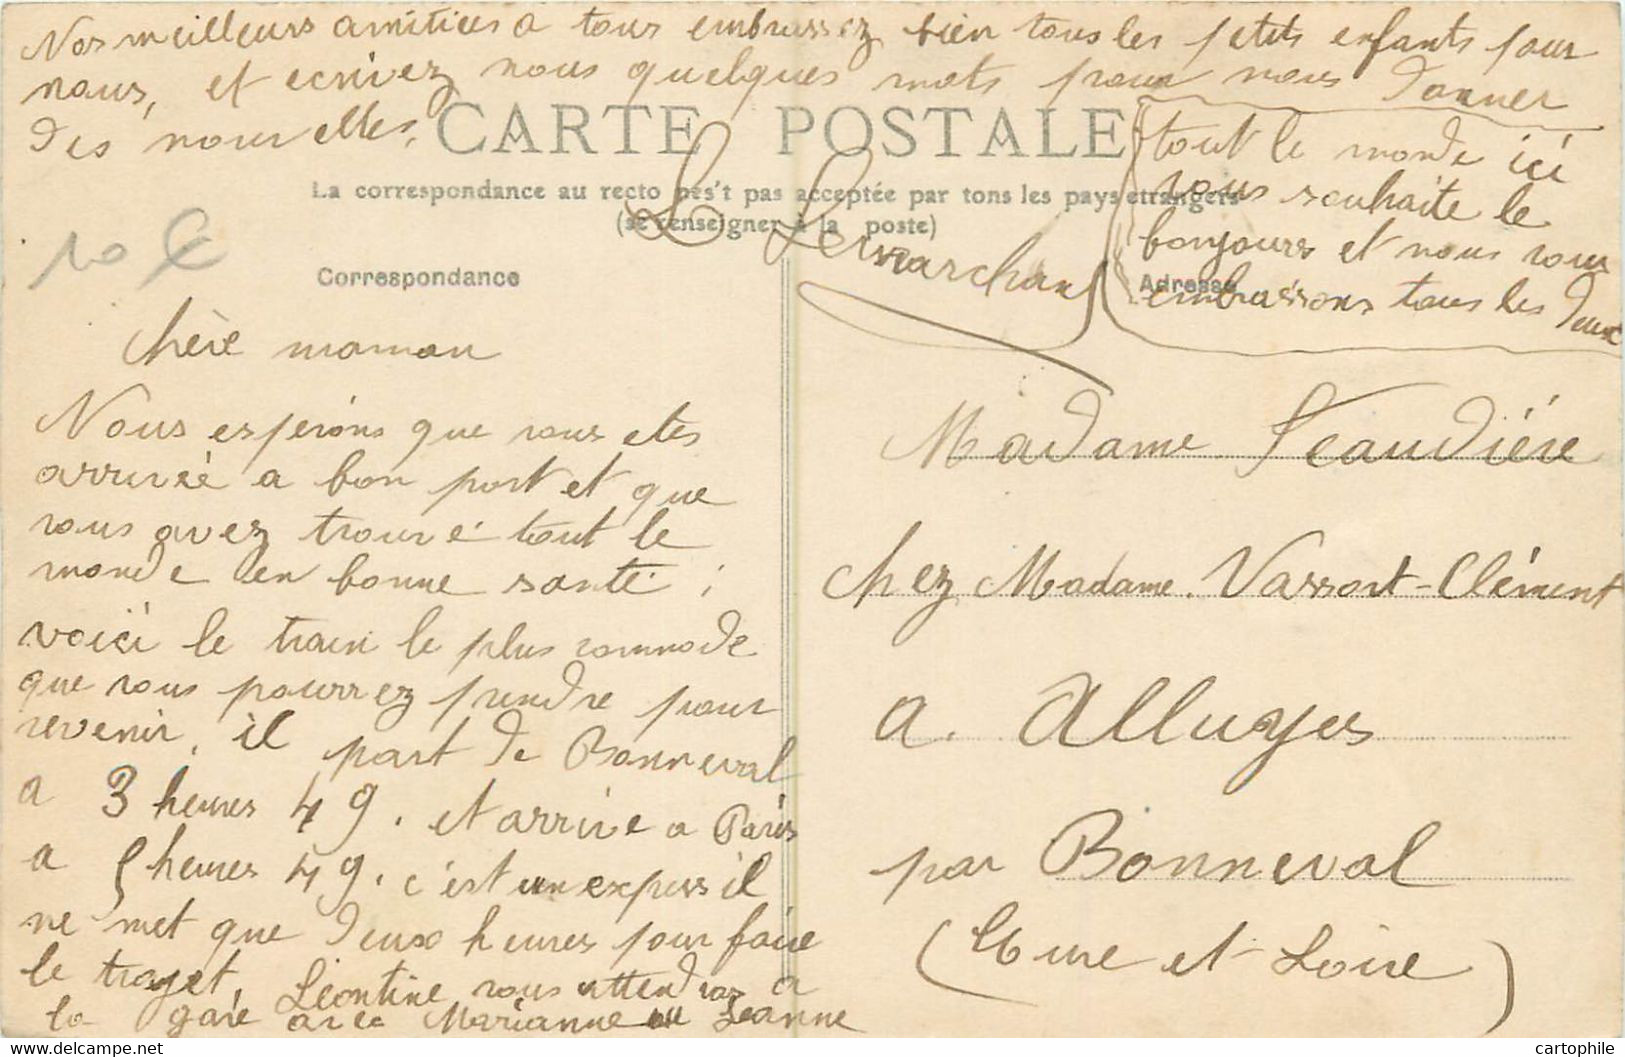 Nos meilleurs amitiées a tous embrassez bien tous les petits enfants pour
nous, et ecrivez nous quelques mots pour nous donner
des nouvelles.
CARTE POSTALE
La correspondance au recto nes't pas acceptée par tons les pays etrangers
(se renseigner à la poste)
L Lemarchand
tout le monde ici
vous souhaite le
bonjours et nous vous
embrassons tous les deux
10 €
Correspondance
Adresse
Chère maman
Nous esperons que vous etes
arrivée a bon port et que
vous avez trouvé tout le
monde en bonne santé ;
voici le train le plus commode
que vous pourrez prendre pour
revenir, il part de Bonneval
a 3 heures 49. et arrive a Paris
a 5 heures 49. c'est un express il
ne met que deux heures pour faire
le trajet. Léontine vous attendras a
la gare avec Marianne ou Jeanne
Madame Feaudière
chez Madame. Vassort-Clément
a. Alluyes
par Bonneval
(Eure et Loire)
cartophile